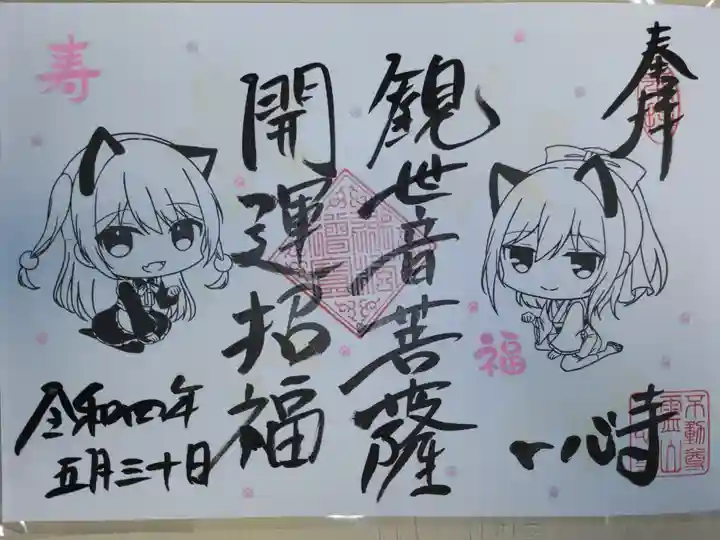 奉拝
観世音菩薩
開運招福
寿
福
一心寺
不動尊
霊山
令和四年
五月三十日